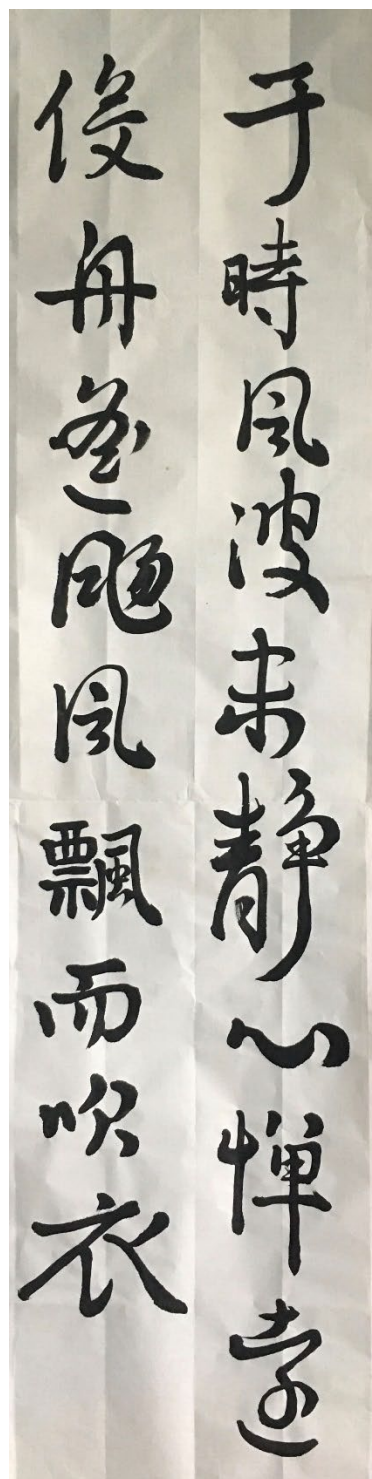 于時風波未静心惮遠
役舟遥颺風飄而吹衣